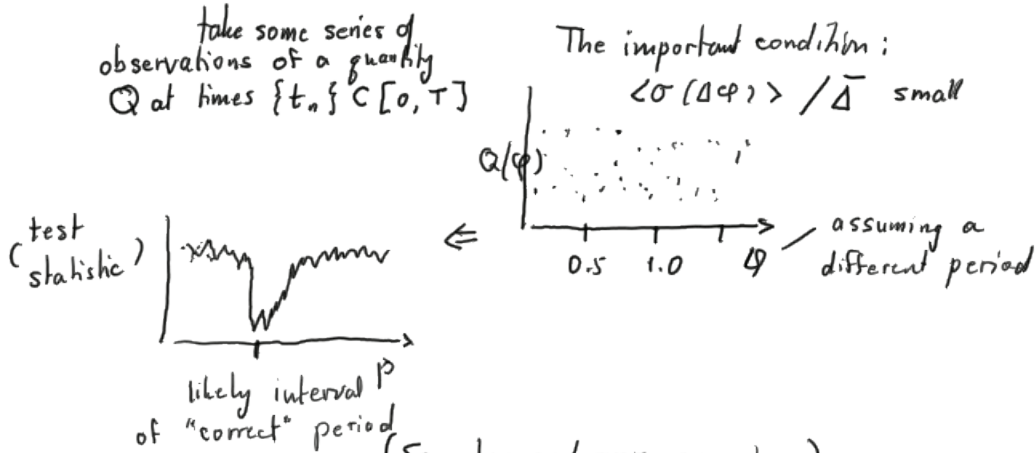 take some series of
observations of a quantity
Q at times {tₙ} ⊂ [0, T]
The important condition:
<σ(Δφ)> / Δ̄ small
Q(φ)
0.5 1.0 φ
assuming a
different period
⇐
(test
statistic)
P
likely interval
of "correct" period